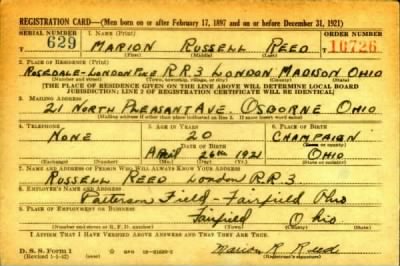 REGISTRATION CARD—(Men born on or after February 17, 1897 and on or before December 31, 1921)
SERIAL NUMBER
1. NAME (Print)
ORDER NUMBER
629
MARION RUSSELL REED
10726
(First) (Middle) (Last)
2. PLACE OF RESIDENCE (Print)
ROSEDALE-LONDON PIKE R.R.3 LONDON MADISON OHIO
(Number and street) (Town, township, village, or city) (County) (State)
[THE PLACE OF RESIDENCE GIVEN ON THE LINE ABOVE WILL DETERMINE LOCAL BOARD
JURISDICTION; LINE 2 OF REGISTRATION CERTIFICATE WILL BE IDENTICAL]
3. MAILING ADDRESS
21 NORTH PLEASANT AVE. OSBORNE OHIO
[Mailing address if other than place indicated on line 2. If same insert word same]
4. TELEPHONE
5. AGE IN YEARS
6. PLACE OF BIRTH
NONE
20
CHAMPAIGN
DATE OF BIRTH
(Town or county)
APRIL 26th 1921
OHIO
(Exchange) (Number)
(Mo.) (Day) (Yr.)
(State or country)
7. NAME AND ADDRESS OF PERSON WHO WILL ALWAYS KNOW YOUR ADDRESS
RUSSELL REED London R.R.3
8. EMPLOYER'S NAME AND ADDRESS
Patterson Field - Fairfield Ohio
9. PLACE OF EMPLOYMENT OR BUSINESS
Fairfield Ohio
(Number and street or R. F. D. number) (Town) (County) (State)
I AFFIRM THAT I HAVE VERIFIED ABOVE ANSWERS AND THAT THEY ARE TRUE.
D. S. S. Form 1
(Revised 1-1-42) (over)
Marion R. Reed
(Registrant's signature)